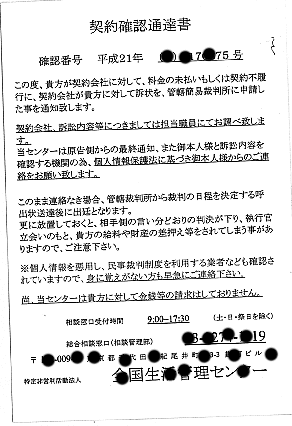 契約確認通達書
確認番号 平成21年 17 75号
この度、貴方が契約会社に対して、料金の未払いもしくは契約不履
行に、契約会社が貴方に対して訴状を、管轄簡易裁判所に申請し
た事を通知致します。
契約会社、訴訟内容等につきましては担当職員にてお調べ致しま
す。
当センターは原告側からの最終通知、また御本人様と訴訟内容を
確認する機関の為、個人情報保護法に基づき御本人様からのご連
絡をお願い致します。
このまま連絡なき場合、管轄裁判所から裁判の日程を決定する呼
出状送達後に出廷となります。
更に放置しておくと、相手側の言い分どおりの判決が下り、執行官
立会いのもと、貴方の給料や財産の差押え等をされてしまう事があ
りますので、ご注意下さい。
※個人情報を悪用し、民事裁判制度を利用する業者なども確認さ
れていますので、身に覚えがない方も早急にご連絡下さい。
尚、当センターは貴方に対して金銭等の請求はしておりません。
相談窓口受付時間 9:00~17:30 (土・日・祭日を除く)
総合相談窓口(相談管理部) 3- 27 - 19
〒 -009 京都 代田 紀尾井 -3 ビル
特定非営利活動法人 全国生活管理センター